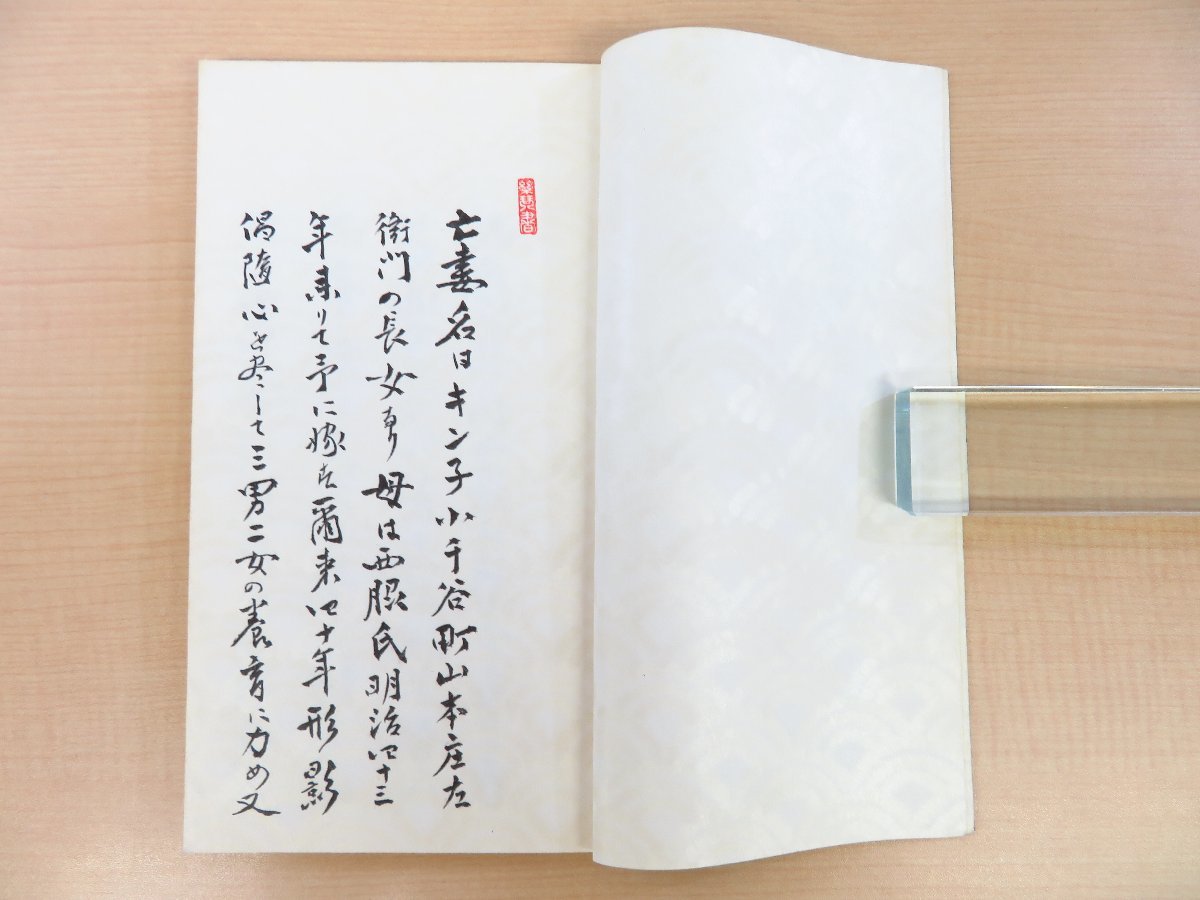 亡妻名曰キン子小千谷町山本庄左
衛門の長女なり母は西脇氏明治四十三
年来りて予に嫁す爾来四十年形影
偶随心を尽して三男二女の養育に力め又